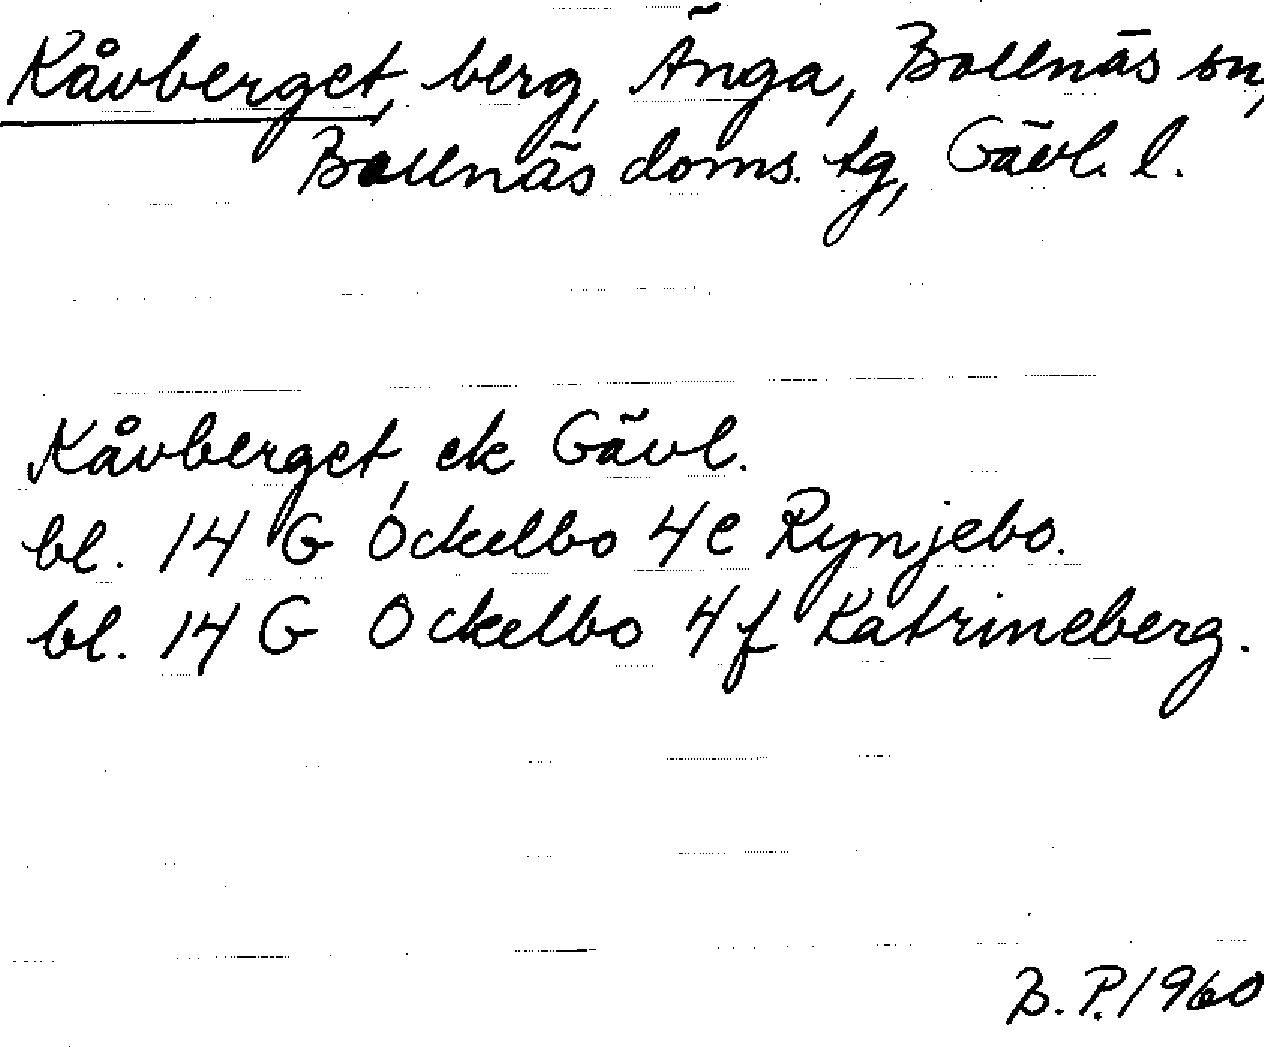 Kåvberget, berg, Änga, Bollnäs sn,
Bollnäs doms. tg, Gävl. l.
Kåvberget, ek Gävl.
bl. 14 G Ockelbo 4e Rynjebo.
bl. 14 G Ockelbo 4f Katrineberg.
B.P. 1960